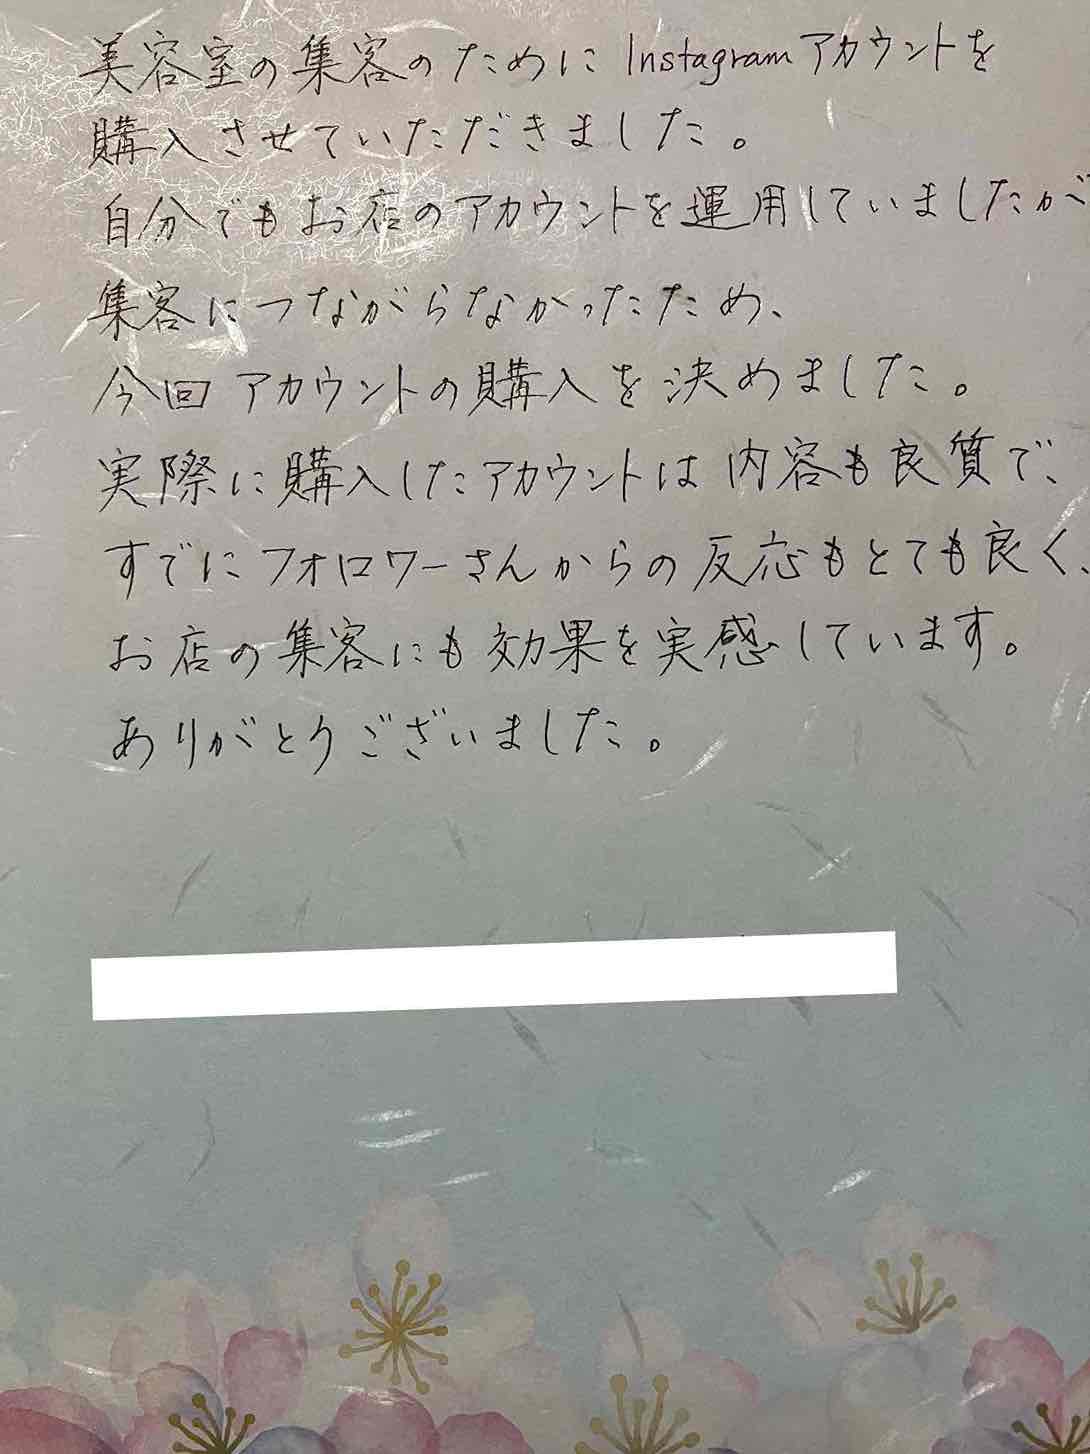 美容室の集客のためにInstagramアカウントを
購入させていただきました。
自分でもお店のアカウントを運用していましたが
集客につながらなかったため、
今回アカウントの購入を決めました。
実際に購入したアカウントは内容も良質で、
すでにフォロワーさんからの反応もとても良く、
お店の集客にも効果を実感しています。
ありがとうございました。